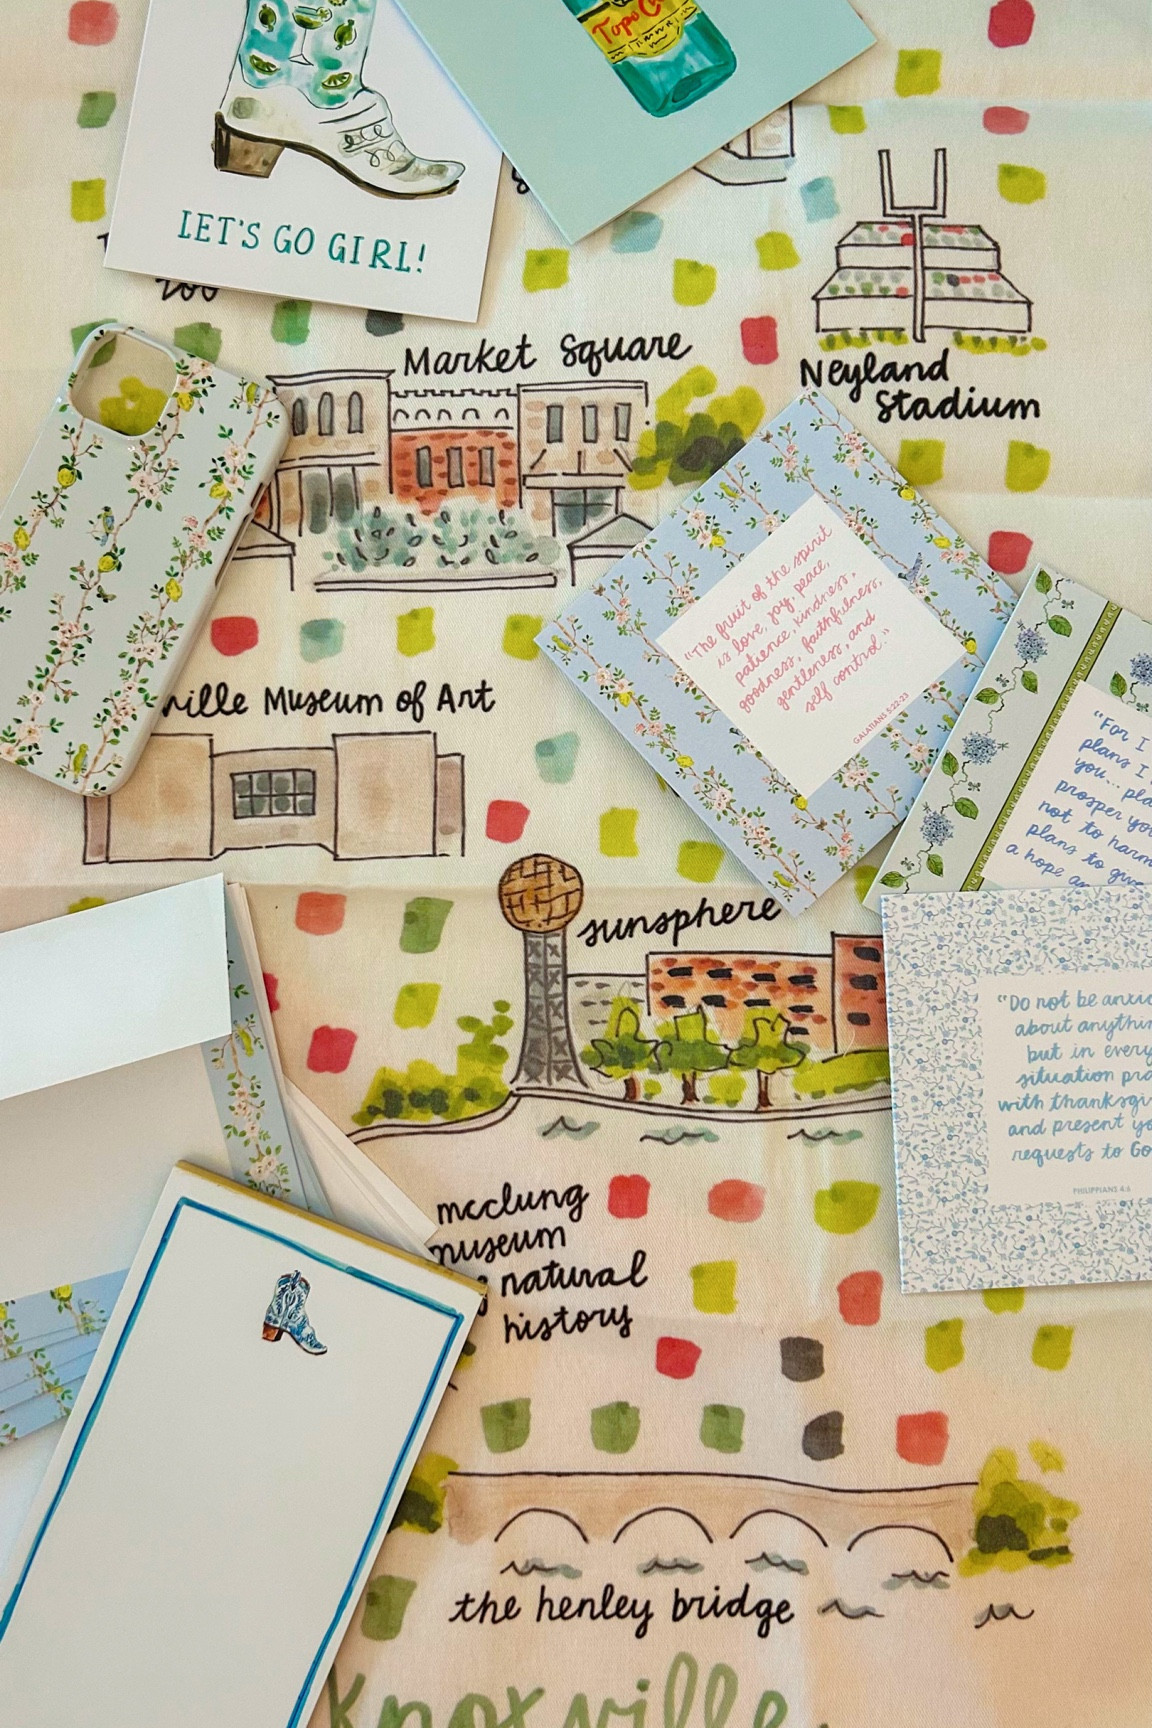 Topo
LET'S GO GIRL!
too
Market Square
Neyland
Stadium
"The fruit of the spirit
is love, joy, peace,
patience, kindness,
goodness, faithfulness,
gentleness, and
self control."
GALATIANS 5:22-23
ville Museum of Art
"For I
plans I
you... pla
prosper you
not to harm
plans to give
a hope an
sunsphere
"Do not be anxio
about anythin
but in every
situation pra
with thanksgi
and present yo
requests to Go
PHILIPPIANS 4:6
mcclung
museum
natural
history
the henley bridge
Knoxville